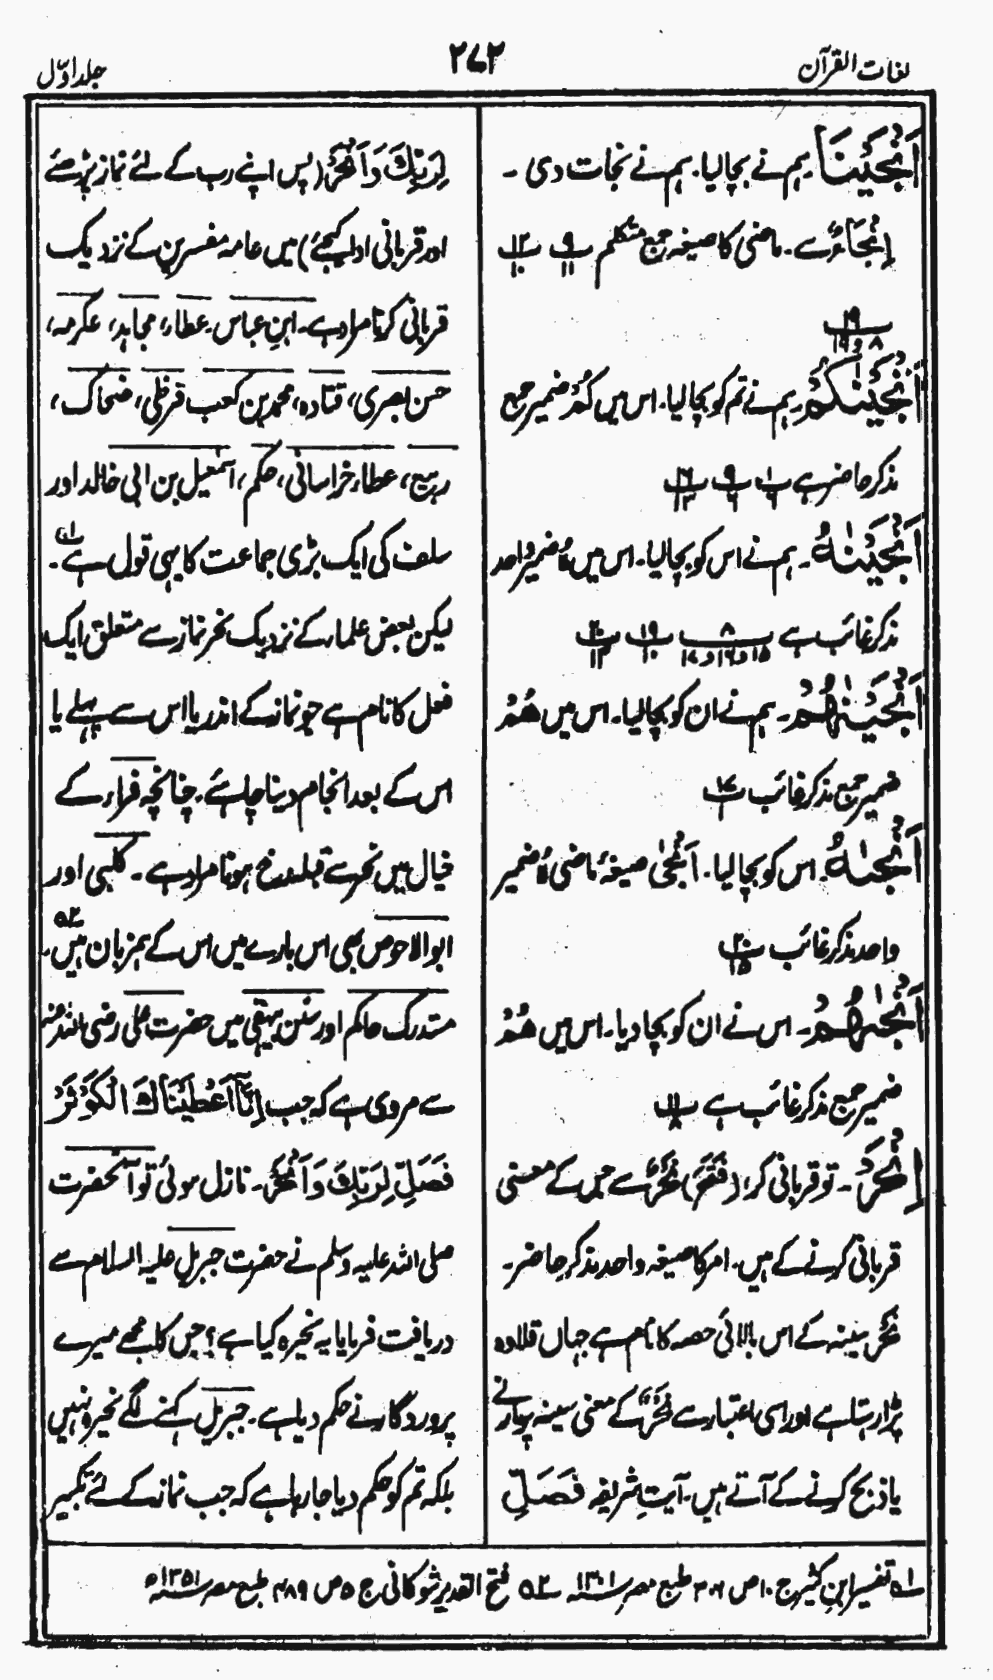 لغات القرآن
۲۷۳
جلد اوّل
اَنْجَيْنَا۔ ہم نے بچا لیا۔ ہم نے نجات دی۔
اِنْجَاءٌ سے۔ ماضی کا صیغہ جمع متکلم
اَنْجَيْنٰكُمْ۔ ہم نے تم کو بچا لیا۔ اس میں كُمْ ضمیر جمع
مذکر حاضر ہے
اَنْجَيْنٰهُ۔ ہم نے اس کو بچا لیا۔ اس میں هُ ضمیر واحد
مذکر غائب ہے
اَنْجَيْنٰهُمْ۔ ہم نے ان کو بچا لیا۔ اس میں هُمْ
ضمیر جمع مذکر غائب
اَنْجٰىهُ۔ اس کو بچا لیا۔ اَنْجٰى صیغۂ ماضی هُ ضمیر
واحد مذکر غائب
اَنْجٰىهُمْ۔ اس نے ان کو بچا دیا۔ اس میں هُمْ
ضمیر جمع مذکر غائب ہے
اِنْحَرْ۔ تو قربانی کر، (فَتَحَ) نَحْرٌ سے جس کے معنی
قربانی کرنے کے ہیں۔ امر کا صیغہ واحد مذکر حاضر۔
نَحْر سینہ کے اس بالائی حصہ کا نام ہے جہاں قلادہ
پڑا رہتا ہے اور اسی اعتبار سے نَحْرٌ کے معنی سینہ پہ مارنے
یا ذبح کرنے کے آتے ہیں۔ آیت شریفہ فَصَلِّ
لِرَبِّكَ وَانْحَرْ (پس اپنے رب کے لئے نماز پڑھئے
اور قربانی ادا کیجئے) میں عامہ مفسرین کے نزدیک
قربانی کرنا مراد ہے۔ ابن عباس، عطاء، مجاہد، عکرمہ،
حسن بصری، قتادہ، محمد بن کعب قرظی، ضحاک،
ربیع، عطاء خراسانی، حکم، اسمٰعیل بن ابی خالد اور
سلف کی ایک بڑی جماعت کا یہی قول ہے۔ ؎۱
لیکن بعض علماء کے نزدیک نحر نماز سے متعلق ایک
فعل کا نام ہے جو نماز کے اندر یا اس سے پہلے یا
اس کے بعد انجام دینا چاہئے۔ چنانچہ فراء کے
خیال میں نحر سے قبلہ رخ ہونا مراد ہے۔ کلبی اور
ابوالاحوص بھی اس بارے میں اس کے ہم زبان ہیں۔ ؎۲
مستدرک حاکم اور سنن بیہقی میں حضرت علی رضی اللہ عنہ
سے مروی ہے کہ جب اِنَّآ اَعْطَيْنَاكَ الْكَوْثَرَ
فَصَلِّ لِرَبِّكَ وَانْحَرْ۔ نازل ہوئی تو آنحضرت
صلی اللہ علیہ وسلم نے حضرت جبریل علیہ السلام سے
دریافت فرمایا یہ نحیرہ کیا ہے؟ جس کا مجھے میرے
پروردگار نے حکم دیا ہے۔ جبریل کہنے لگے نحیرہ نہیں
بلکہ تم کو حکم دیا جا رہا ہے کہ جب نماز کے لئے تکبیر
؎۱ تفسیر ابن کثیر ج ۱۰ ص ۳۰۶ طبع مصر ۱۳۰۱ ؎۲ فتح القدیر شوکانی ج ۵ ص ۴۸۹ طبع مصر ۱۳۵۱ھ